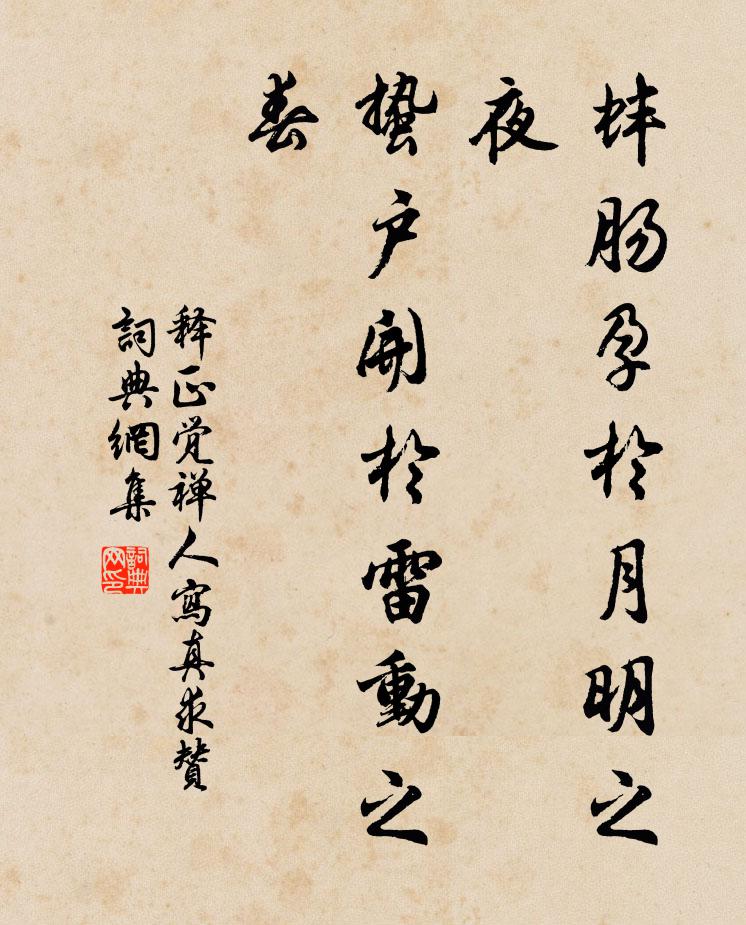 蚌肠孕於月明之
夜
蟄户開於雷動之
春
释正觉禅人寫真求贊
詞典網集
詞典网印